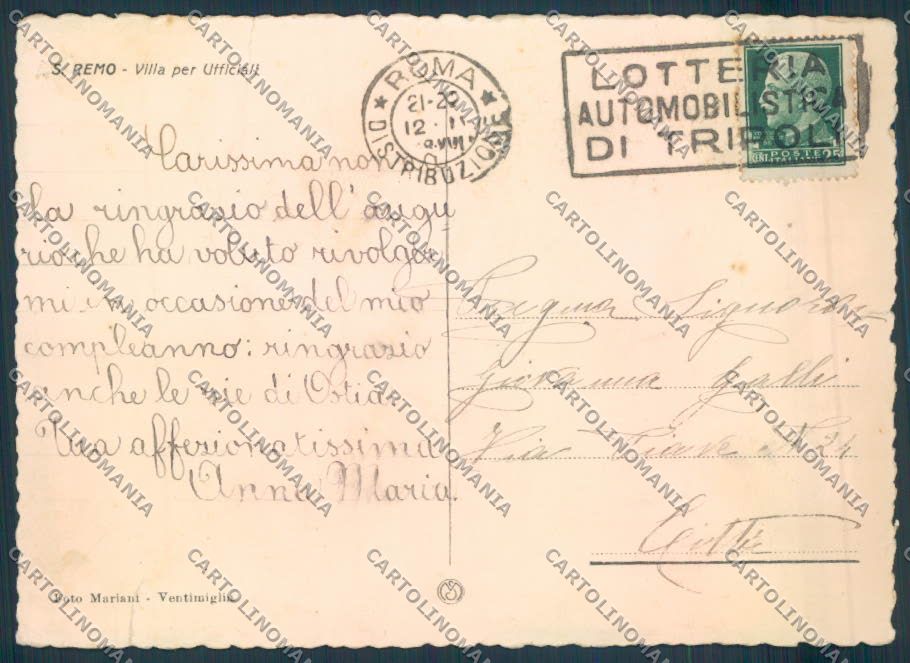 S. REMO - Villa per Ufficiali
ROMA
21-22
12. II
XVIII
DISTRIBUZIONE
LOTTERIA
AUTOMOBILISTICA
DI TRIPOLI
POSTE
ITALIANE
CENT. 25
Carissima non
na ringrazio dell'augu
rio che ha voluto rivolger
mi in occasione del mio
compleanno: ringrazio
anche le zie di Ostia
Tua affezionatissima
Anna Maria
Signora
Giovanna Galli
Via Piave N. 24
Città
Foto Mariani - Ventimiglia
CARTOLINOMANIA